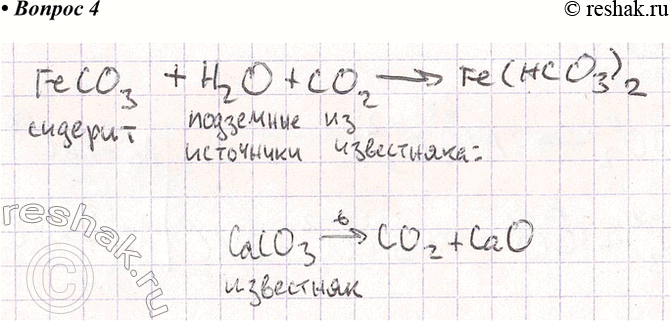 • Вопрос 4
© reshak.ru
FeCO₃ + H₂O + CO₂ → Fe(HCO₃)₂
сидерит подземные из
источники известняка:
reshak.ru
©
CaCO₃ →ᵗ CO₂ + CaO
известняк